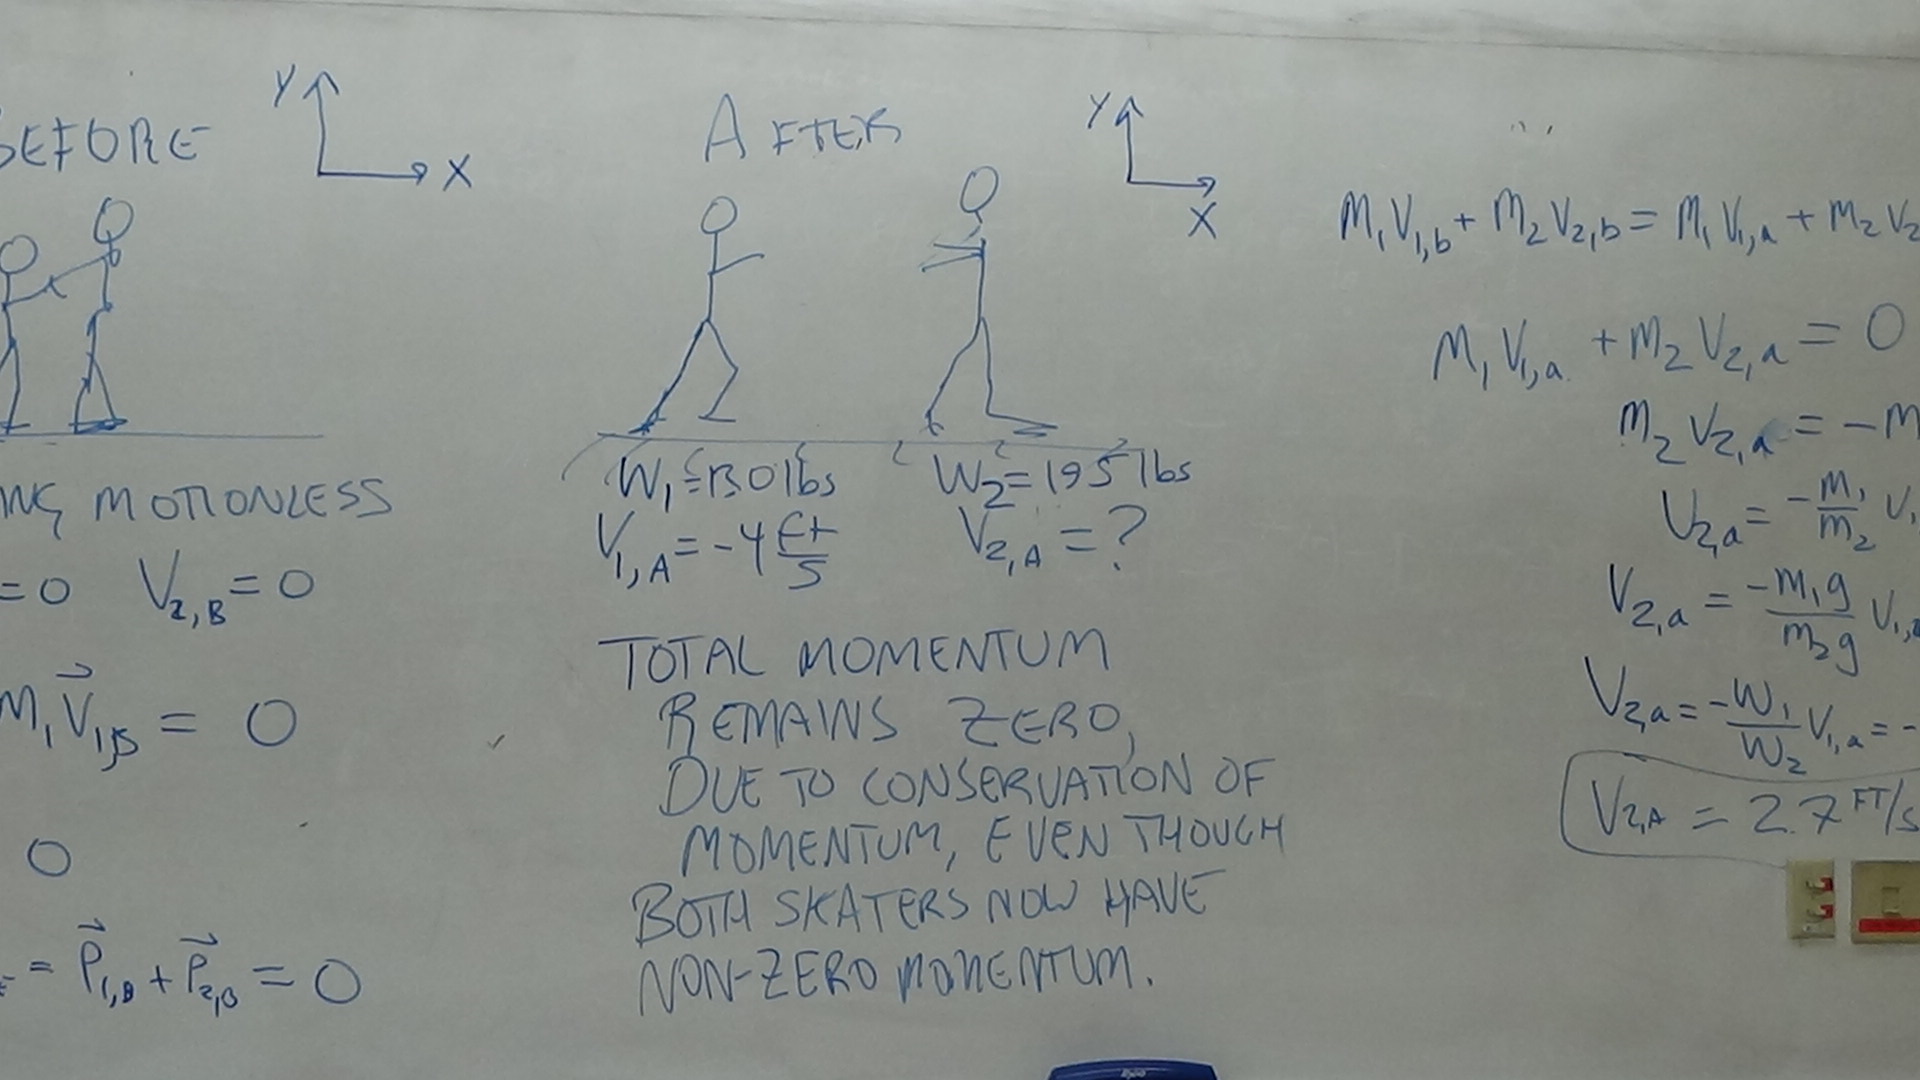 BEFORE
Y
X
NG MOTIONLESS
=0 V2,B = 0
M1 V1,B = 0
0
= P1,B + P2,B = 0
AFTER
Y
X
W1 = 130 lbs W2 = 195 lbs
V1,A = -4 ft/s V2,A = ?
TOTAL MOMENTUM
REMAINS ZERO,
DUE TO CONSERVATION OF
MOMENTUM, EVEN THOUGH
BOTH SKATERS NOW HAVE
NON-ZERO MOMENTUM.
M1 V1,b + M2 V2,b = M1 V1,a + M2 V2
M1 V1,a + M2 V2,a = 0
M2 V2,a = -M
V2,a = -M1/M2 V1
V2,a = -M1g/M2g V1,a
V2,a = -W1/W2 V1,a = -
V2,A = 2.7 FT/S